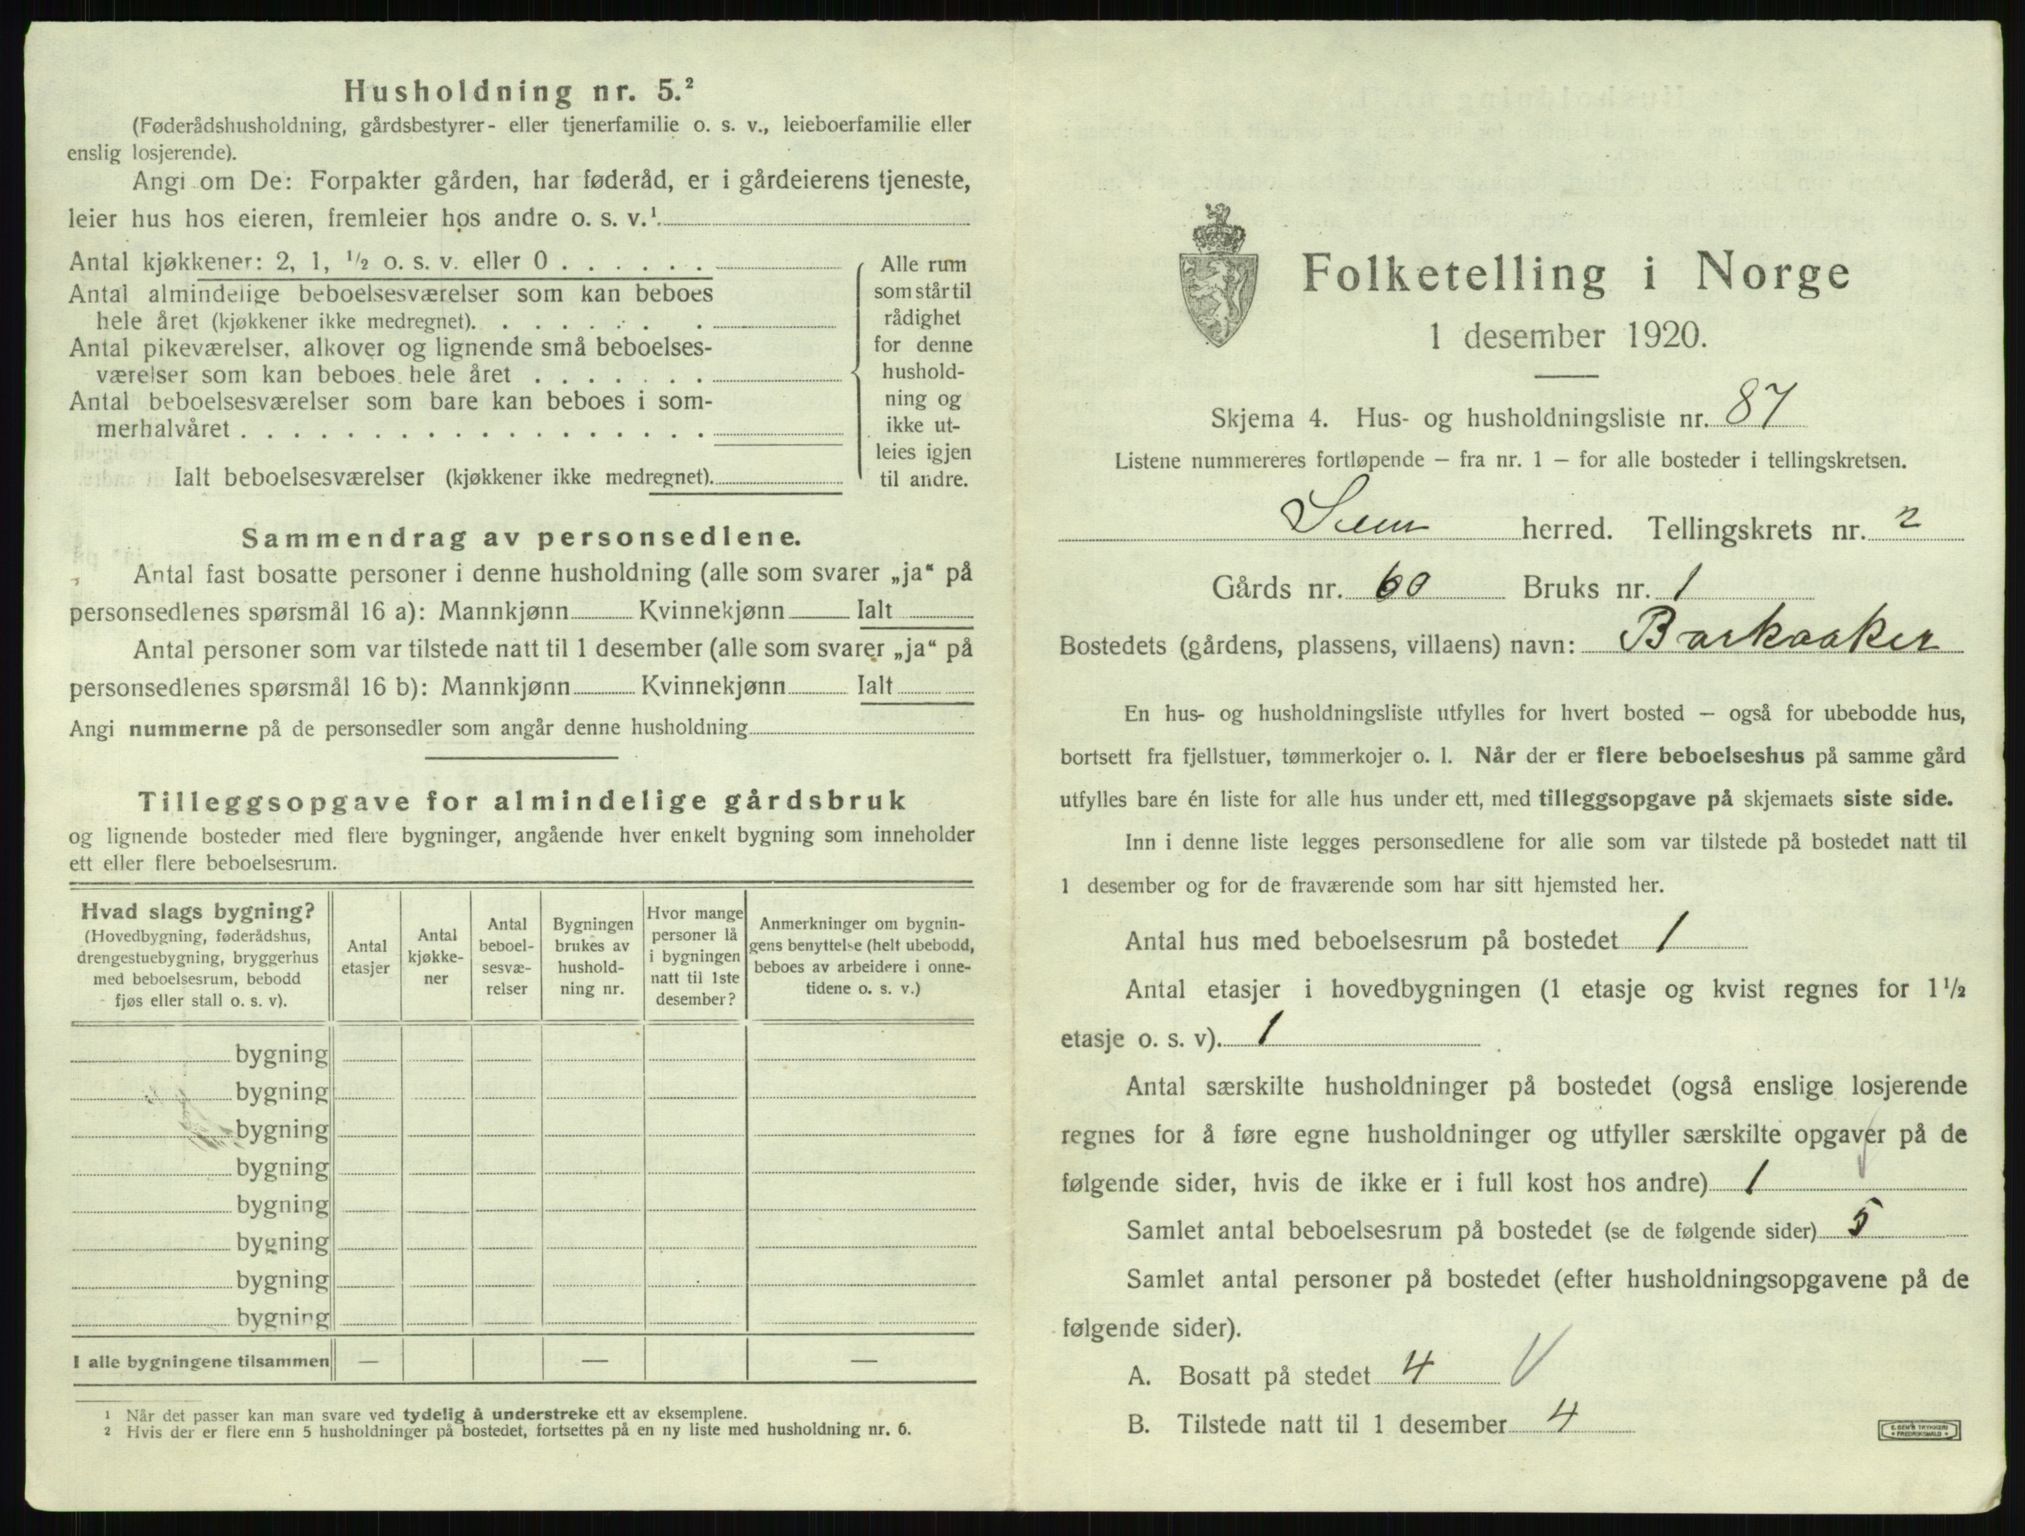 Husholdning nr. 5.²
(Føderådshusholdning, gårdsbestyrer- eller tjenerfamilie o. s. v., leieboerfamilie eller
enslig losjerende).
Angi om De: Forpakter gården, har føderåd, er i gårdeierens tjeneste,
leier hus hos eieren, fremleier hos andre o. s. v.¹
Antal kjøkkener: 2, 1, ¹/₂ o. s. v. eller 0 . . . . . .
Antal almindelige beboelsesværelser som kan beboes
hele året (kjøkkener ikke medregnet). . . . . . . .
Antal pikeværelser, alkover og lignende små beboelses-
værelser som kan beboes hele året . . . . . . .
Antal beboelsesværelser som bare kan beboes i som-
merhalvåret . . . . . . . . . . . . . . . . . .
Ialt beboelsesværelser (kjøkkener ikke medregnet).
Alle rum
som står til
rådighet
for denne
hushold-
ning og
ikke ut-
leies igjen
til andre.
Sammendrag av personsedlene.
Antal fast bosatte personer i denne husholdning (alle som svarer „ja“ på
personsedlenes spørsmål 16 a): Mannkjønn Kvinnekjønn Ialt
Antal personer som var tilstede natt til 1 desember (alle som svarer „ja“ på
personsedlenes spørsmål 16 b): Mannkjønn Kvinnekjønn Ialt
Angi nummerne på de personsedler som angår denne husholdning
Tilleggsopgave for almindelige gårdsbruk
og lignende bosteder med flere bygninger, angående hver enkelt bygning som inneholder
ett eller flere beboelsesrum.
Hvad slags bygning?
(Hovedbygning, føderådshus,
drengestuebygning, bryggerhus
med beboelsesrum, bebodd
fjøs eller stall o. s. v).
Antal
etasjer
Antal
kjøkke-
ner
Antal
beboel-
sesvæ-
relser
Bygningen
brukes av
hushold-
ning nr.
Hvor mange
personer lå
i bygningen
natt til 1ste
desember?
Anmerkninger om bygnin-
gens benyttelse (helt ubebodd,
beboes av arbeidere i onne-
tidene o. s. v.)
bygning
bygning
bygning
bygning
bygning
bygning
bygning
bygning
I alle bygningene tilsammen — — —
¹ Når det passer kan man svare ved tydelig å understreke ett av eksemplene.
² Hvis der er flere enn 5 husholdninger på bostedet, fortsettes på en ny liste med husholdning nr. 6.
Folketelling i Norge
1 desember 1920.
Skjema 4. Hus- og husholdningsliste nr. 87
Listene nummereres fortløpende — fra nr. 1 — for alle bosteder i tellingskretsen.
Sem herred. Tellingskrets nr. 2
Gårds nr. 60 Bruks nr. 1
Bostedets (gårdens, plassens, villaens) navn: Barkaaker
En hus- og husholdningsliste utfylles for hvert bosted — også for ubebodde hus,
bortsett fra fjellstuer, tømmerkojer o. l. Når der er flere beboelseshus på samme gård
utfylles bare én liste for alle hus under ett, med tilleggsopgave på skjemaets siste side.
Inn i denne liste legges personsedlene for alle som var tilstede på bostedet natt til
1 desember og for de fraværende som har sitt hjemsted her.
Antal hus med beboelsesrum på bostedet 1
Antal etasjer i hovedbygningen (1 etasje og kvist regnes for 1¹/₂
etasje o. s. v). 1
Antal særskilte husholdninger på bostedet (også enslige losjerende
regnes for å føre egne husholdninger og utfyller særskilte opgaver på de
følgende sider, hvis de ikke er i full kost hos andre) 1
Samlet antal beboelsesrum på bostedet (se de følgende sider) 5
Samlet antal personer på bostedet (efter husholdningsopgavene på de
følgende sider).
A. Bosatt på stedet 4
B. Tilstede natt til 1 desember 4